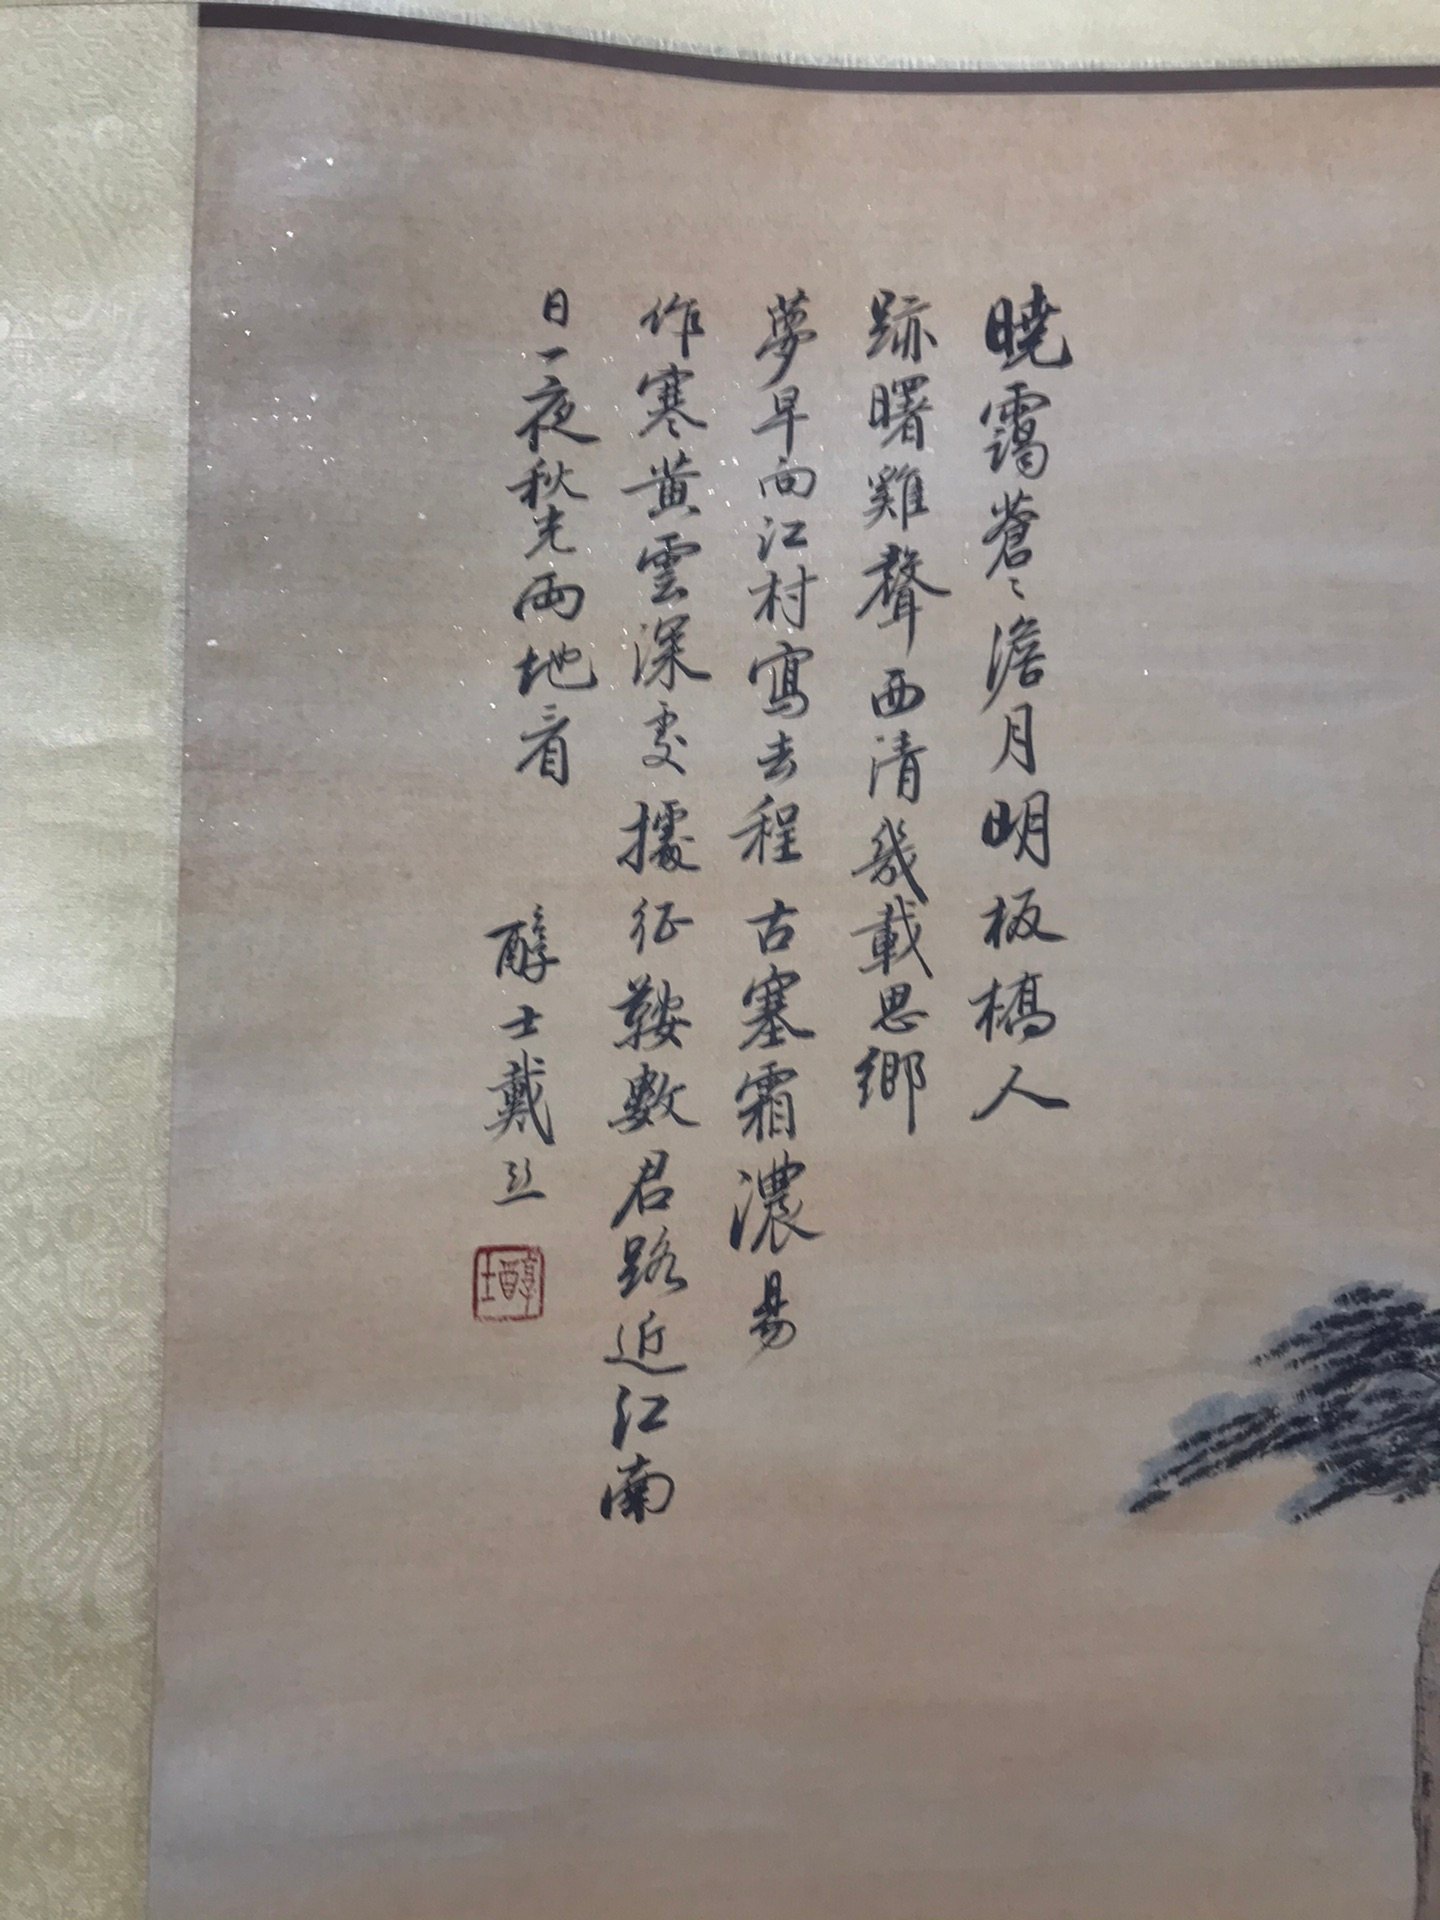 曉靄蒼〻澹月明板橋人
跡曙雞聲西清幾載思鄉
夢早向江村寫去程古塞霜濃易
作寒黃雲深處擾征鞍數君路近江南
日一夜秋光兩地看
醇士戴熙
醇士